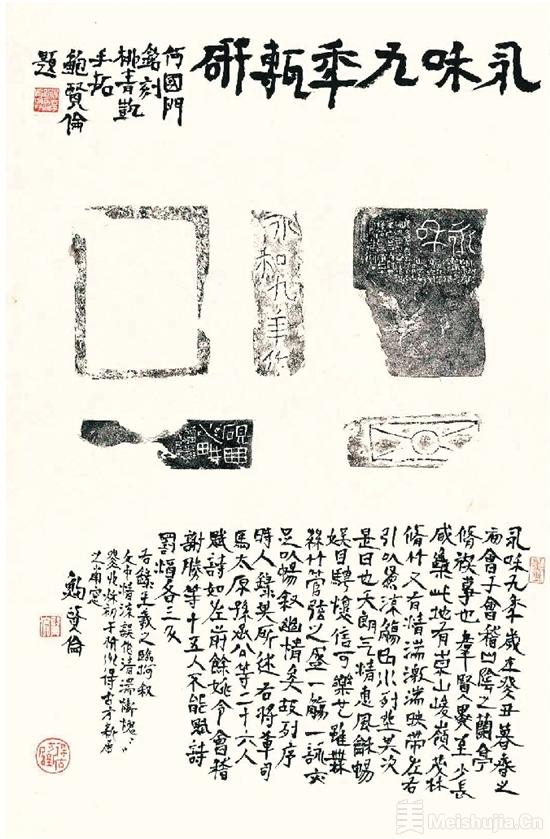 永咊九秊甎研
何國門
銘刻
桃青凱
手拓
鮑賢倫
題
永咊
永和九年作
硯田
心畊
永咊九秊歲在癸丑暮春之
會于會稽山陰之蘭亭
脩禊事也羣賢畢至少長
咸集此地有崇山峻嶺茂林
脩竹又有清湍激湍映帶左右
引以為流觴曲水列坐其次
是日也天朗气清惠風龢暢
娛目騁懷信可樂也雖無
絲竹管弦之盛一觴一詠亦
足以暢叙幽情矣故列序
時人錄其所述右將軍司
馬太原孫丞公等二十六人
賦詩如左前餘姚令會稽
謝勝等十五人不能賦詩
罰酒各三斗
右錄王羲之臨河叙
文中清流誤作清湍慚愧
初于杭州得古方新居
之南窗
鮑賢倫
美 Meishujia.Cn